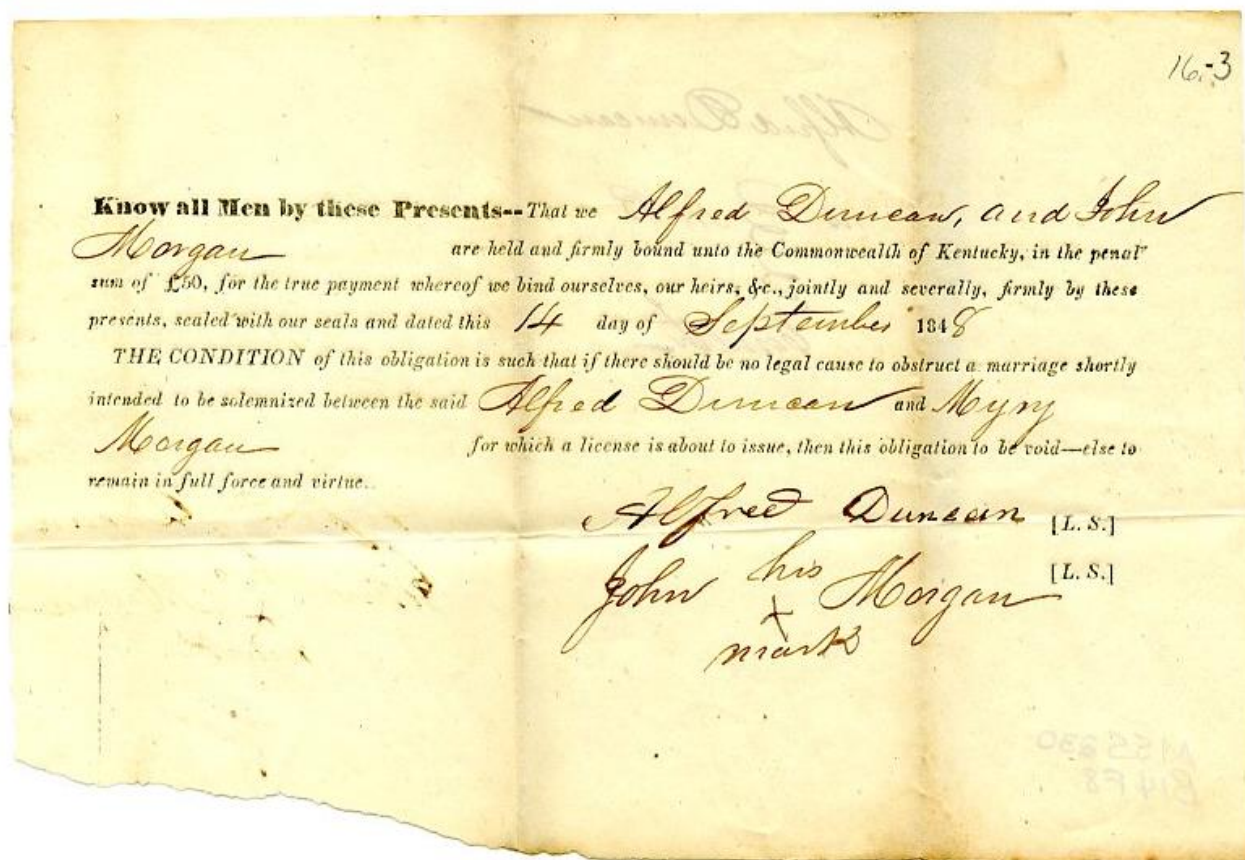 16-3
Alfred Duncan
Know all Men by these Presents--That we Alfred Duncan, and John
Morgan are held and firmly bound unto the Commonwealth of Kentucky, in the penal
sum of £50, for the true payment whereof we bind ourselves, our heirs, &c., jointly and severally, firmly by these
presents, sealed with our seals and dated this 14 day of September 1848
THE CONDITION of this obligation is such that if there should be no legal cause to obstruct a marriage shortly
intended to be solemnized between the said Alfred Duncan and Myry
Morgan for which a license is about to issue, then this obligation to be void—else to
remain in full force and virtue.
Alfred Duncan [L. S.]
John his Morgan [L. S.]
x
mark
MSS230
B14 F8